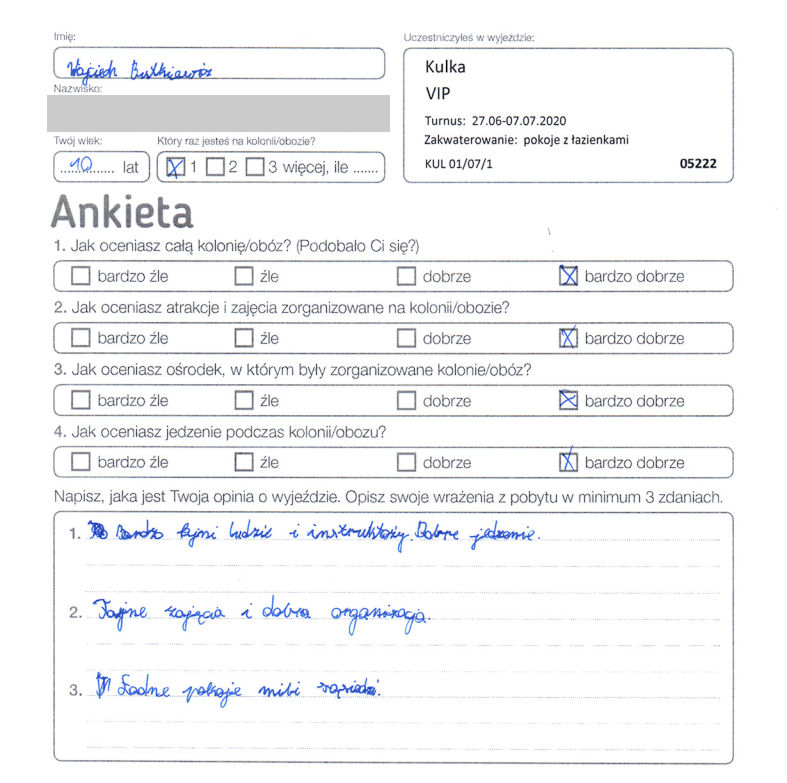 Imię:
Wojciech Butkiewicz
Nazwisko:
Twój wiek:
10 lat
Który raz jesteś na kolonii/obozie?
1 2 3 więcej, ile .......
Uczestniczyłeś w wyjeździe:
Kulka
VIP
Turnus: 27.06-07.07.2020
Zakwaterowanie: pokoje z łazienkami
KUL 01/07/1 05222
Ankieta
1. Jak oceniasz całą kolonię/obóz? (Podobało Ci się?)
bardzo źle źle dobrze bardzo dobrze
2. Jak oceniasz atrakcje i zajęcia zorganizowane na kolonii/obozie?
bardzo źle źle dobrze bardzo dobrze
3. Jak oceniasz ośrodek, w którym były zorganizowane kolonie/obóz?
bardzo źle źle dobrze bardzo dobrze
4. Jak oceniasz jedzenie podczas kolonii/obozu?
bardzo źle źle dobrze bardzo dobrze
Napisz, jaka jest Twoja opinia o wyjeździe. Opisz swoje wrażenia z pobytu w minimum 3 zdaniach.
1. Bardzo fajni ludzie i instruktoży. Dobre jedzenie.
2. Fajne zajęcia i dobra organizacja.
3. Ładne pokoje mili sąsiedzi.